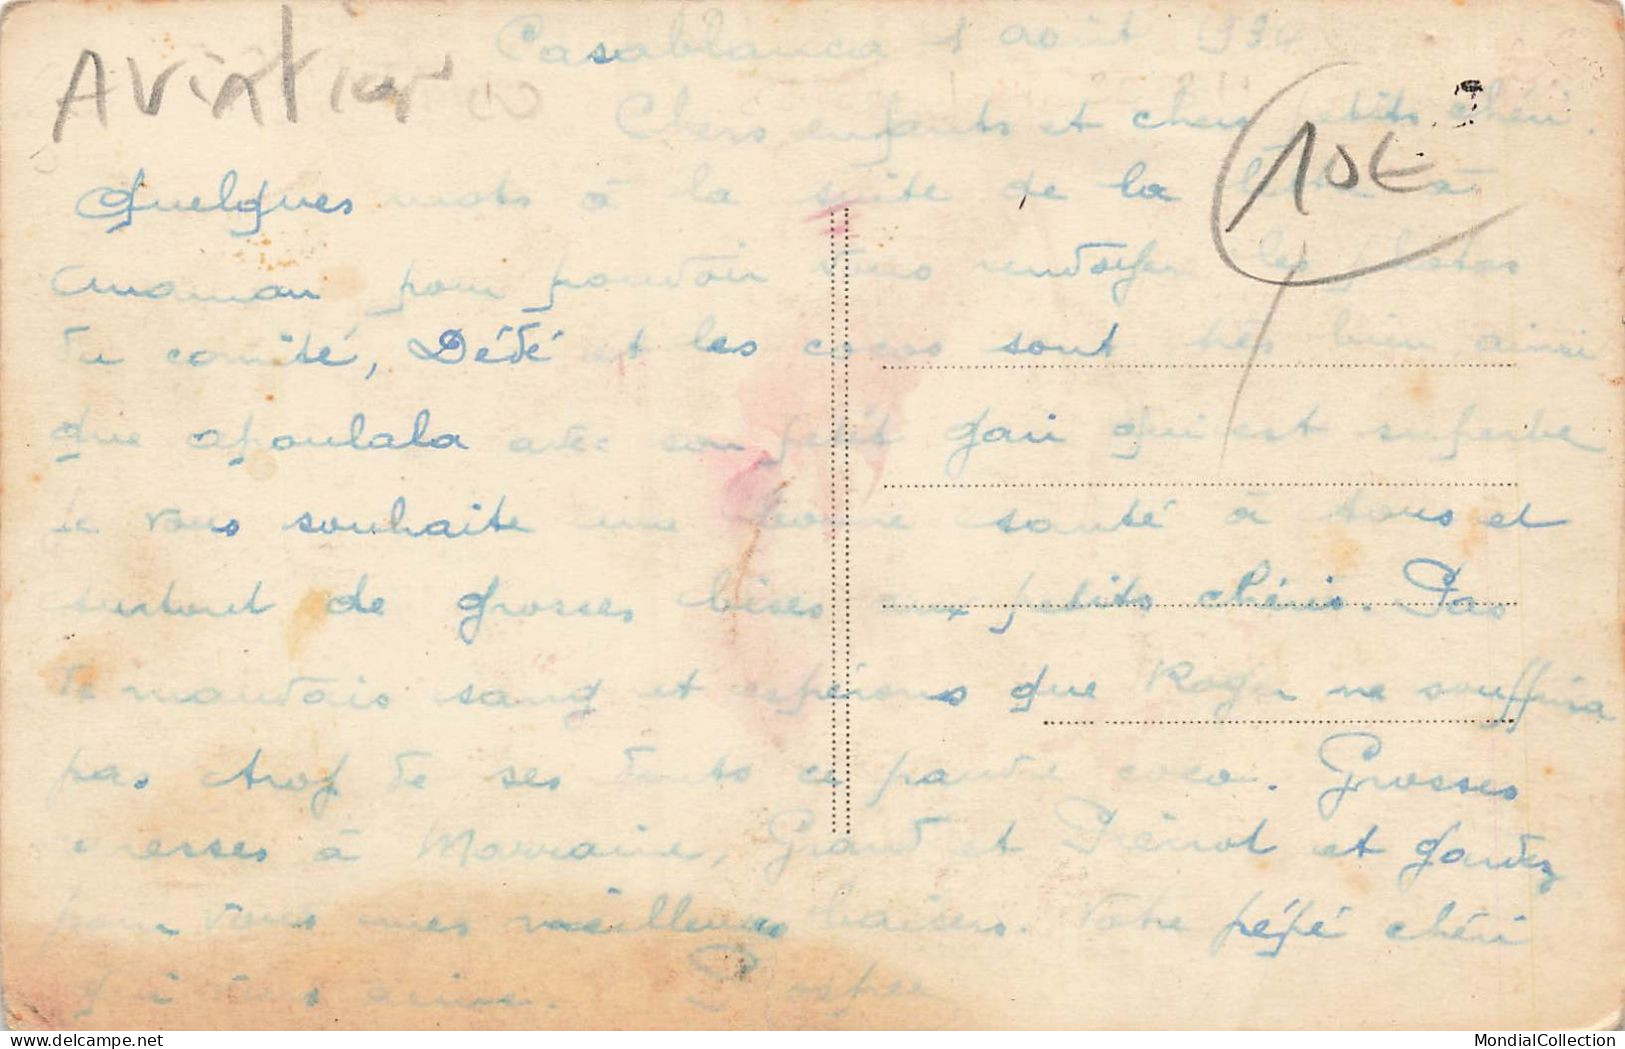 Casablanca 1 août 193
Aviation
Chers enfants et chers petits chéri.
10E
Quelques mots à la suite de la lettre à
maman pour pouvoir vous renvoyer les photos
du comité, Dédé et les cocos sont très bien ainsi
que apoulala avec son petit gari qui est superbe
Je vous souhaite une bonne santé à tous et
surtout de grosses bises aux petits chéris. Pas
de mauvais sang et espérons que Roger ne souffrira
pas trop de ses dents ce pauvre coco. Grosses
caresses à Marraine, Grand et Pierrot et gardez
pour vous mes meilleurs baisers. Votre pépé chéri
qui vous aime. Prosper
MondialCollection